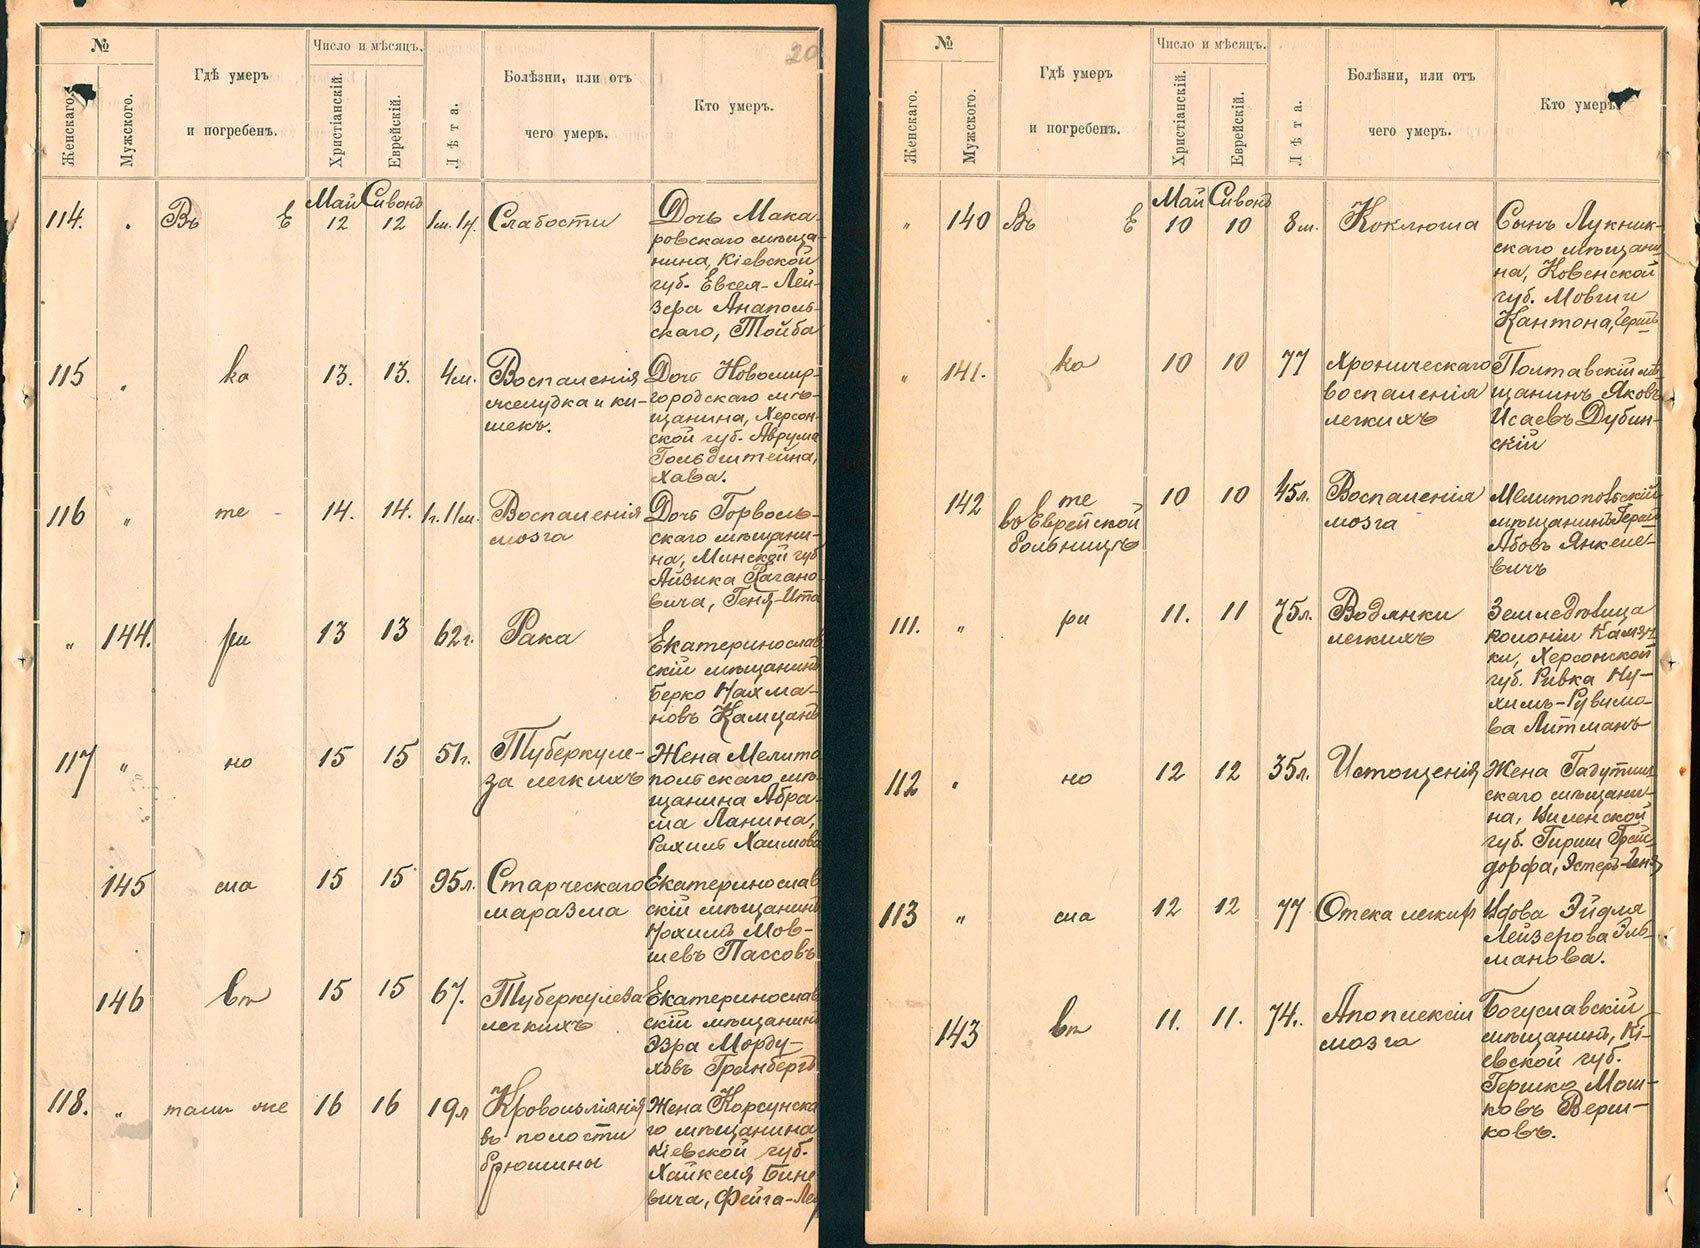 №
Число и мѣсяцъ.
20
Женскаго.
Мужского.
Гдѣ умеръ
и погребенъ.
Христіанскій.
Еврейскій.
Лѣта.
Болѣзни, или отъ
чего умеръ.
Кто умеръ.
Май Сивонъ
114. Въ Е 12 12 1м. 14 Слабости
Дочь Мака-
ровскаго мѣща-
нина, Кіевской
губ. Евсея-Лей-
зера Анаполь-
скаго, Тойба
115 " ка 13. 13. 4м. Воспаленія
желудка и ки-
шекъ.
Дочь Новомир-
городскаго мѣ-
щанина, Херсон-
ской губ. Аврума
Гольдштейна,
Хава.
116 " те 14. 14. 1г. 11м. Воспаленія
мозга
Дочь Горволь-
скаго мѣщани-
на, Минской губ
Айзика Рагано-
вича, Геня-Ита
" 144. ри 13 13 62г. Рака
Екатеринослав
скій мѣщанинъ
Берко Нахма-
новъ Камцанъ
117 " но 15 15 51г. Туберкуле-
за легкихъ
Жена Мелито
польскаго мѣ-
щанина Абра-
ма Ланина,
Рахиль Хаимова
145 сла 15 15 95л. Старческаго
маразма
Екатеринослав
скій мѣщанинъ
Нохимъ Мов-
шевъ Пассовъ
146 вѣ 15 15 67. Туберкулеза
легкихъ
Екатеринослав
скій мѣщанинъ
Эзра Морду-
ховъ Гринбергъ
118. " тамъ же 16 16 19л Кровоизліянія
въ полости
брюшины
Жена Корсунска
го мѣщанина
Кіевской губ.
Хайкеля Бине
вича, Фейга-Лея
№
Число и мѣсяцъ.
Женскаго.
Мужского.
Гдѣ умеръ
и погребенъ.
Христіанскій.
Еврейскій.
Лѣта.
Болѣзни, или отъ
чего умеръ.
Кто умеръ.
Май Сивонъ
" 140 Въ Е 10 10 8м. Коклюша
Сынъ Лукник-
скаго мѣщани-
на, Ковенской
губ. Мовши
Кантона, Гершъ
" 141. ка 10 10 77 Хроническаго
воспаленія
легкихъ
Полтавскій мѣ-
щанинъ Яковъ
Исаевъ Дубин-
скій
142 те
въ Еврейской
больницѣ
10 10 45л. Воспаленія
мозга
Мелитопольскій
мѣщанинъ Гершъ
Абовъ Янкеле-
вичъ
111. " ри 11. 11 75л. Водянки
легкихъ
Земледѣлица
колоніи Камян-
ки, Херсонской
губ. Ривка Ну-
химъ-Рувимо-
ва Литманъ
112 " но 12 12 35л. Истощенія
Жена Гадутиш
скаго мѣщани-
на, Виленской
губ. Гирши Грей
дорфа, Эстеръ-Геня
113 " сла 12 12 77 Отека легкихъ
Вдова Эйдля
Лейзерова Эль-
манова.
143 вѣ 11. 11. 74. Апоплексіи
мозга
Богуславскій
мѣщанинъ, Кі-
евской губ.
Гершко Мош-
ковъ Верш-
ковъ.